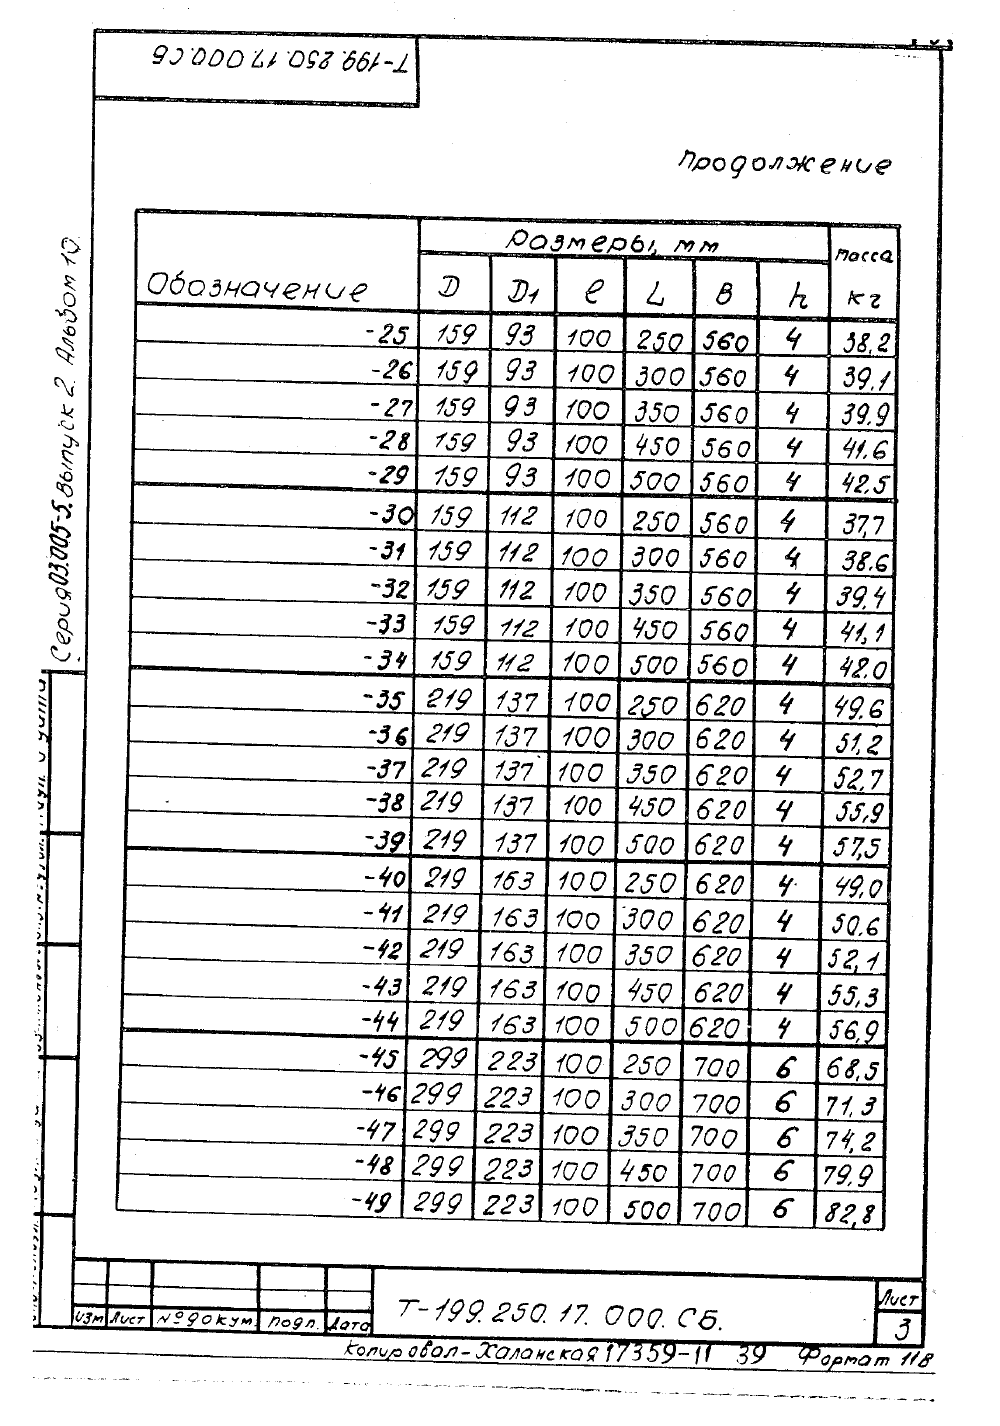 Т-199.250.17.000.СБ
Продолжение
Обозначение Размеры, мм Масса кг
D D1 ℓ L B h
-25 159 93 100 250 560 4 38,2
-26 159 93 100 300 560 4 39.1
-27 159 93 100 350 560 4 39.9
-28 159 93 100 450 560 4 41.6
-29 159 93 100 500 560 4 42.5
-30 159 112 100 250 560 4 37,7
-31 159 112 100 300 560 4 38.6
-32 159 112 100 350 560 4 39.4
-33 159 112 100 450 560 4 41,1
-34 159 112 100 500 560 4 42.0
-35 219 137 100 250 620 4 49.6
-36 219 137 100 300 620 4 51,2
-37 219 137 100 350 620 4 52,7
-38 219 137 100 450 620 4 55,9
-39 219 137 100 500 620 4 57,5
-40 219 163 100 250 620 4 49,0
-41 219 163 100 300 620 4 50.6
-42 219 163 100 350 620 4 52,1
-43 219 163 100 450 620 4 55,3
-44 219 163 100 500 620 4 56,9
-45 299 223 100 250 700 6 68,5
-46 299 223 100 300 700 6 71,3
-47 299 223 100 350 700 6 74,2
-48 299 223 100 450 700 6 79,9
-49 299 223 100 500 700 6 82,8
Серия 03.005-5. Выпуск 2. Альбом 10.
Изм Лист № докум. Подп. Дата
Т-199.250.17.000.СБ.
Лист
3
Копировал-Халанская 17359-11 39 Формат 11В